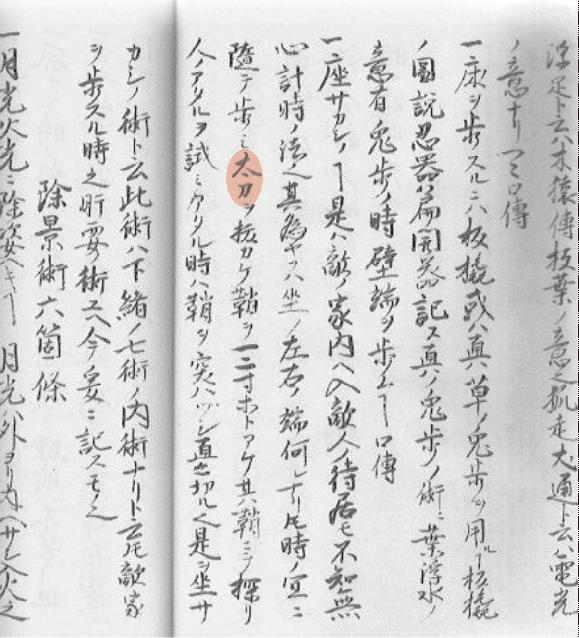 浮足ト云ハ木猿傳枝葉ノ意之狐走犬通ト云ハ電光
ノ意ナリ 口傳
一床ヲ歩スルニハ板橇或ハ真ノ草ノ兎歩ヲ用ルヿ板橇
ノ圖説忍器ノ篇開器記ス真ノ兎歩ノ術ニ葉浮水ノ
意有兎歩ノ時壁端ヲ歩ムヿ口傳
一座サカシノヿ是ハ敵ノ家内ヘ入敵人ノ待居モ不知無
心計時ノ法之其為ヤウハ坐ノ左右ノ端何ナリ圧時ノ宜ニ
隨テ歩ミ太刀ヲ抜カケ鞘ヲ一二寸ホトアケ其鞘ニテ探リ
人ノアリヲ試ミ タル時ハ鞘ヲ突ハツシ直ニ切ル之是ヲ坐サ
カシノ術ト云此術ハ下緒ノ七術ノ内術ナリト云圧敵家
ヲ歩スル時之所要ノ術ユヘ今爰ニ記スモノ之
除景術六箇條
一月光火光ニ除姿ヘキヿ 月光ハ外ヨリ内ヘサシ入火之